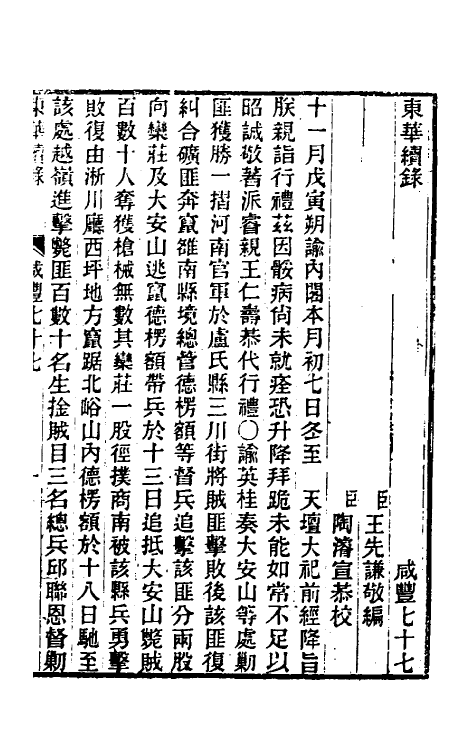 東華續錄 咸豐七十七
臣王先謙敬編
臣陶濬宣恭校
十一月戊寅朔諭內閣本月初七日冬至 天壇大祀前經降旨
朕親詣行禮茲因骽病尙未就痊恐升降拜跪未能如常不足以
昭誠敬著派睿親王仁壽恭代行禮〇諭英桂奏大安山等處勦
匪獲勝一摺河南官軍於盧氏縣三川街將賊匪擊敗後該匪復
糾合礦匪奔竄雒南縣境總管德楞額等督兵追擊該匪分兩股
向欒莊及大安山逃竄德楞額帶兵於十三日追抵大安山斃賊
百數十人奪獲槍械無數其欒莊一股徑撲商南被該縣兵勇擊
敗復由淅川廳西坪地方竄踞北峪山內德楞額於十八日馳至
該處越嶺進擊斃匪百數十名生捦賊目三名總兵邱聯恩督勦
東華續錄 咸豐七十七 一